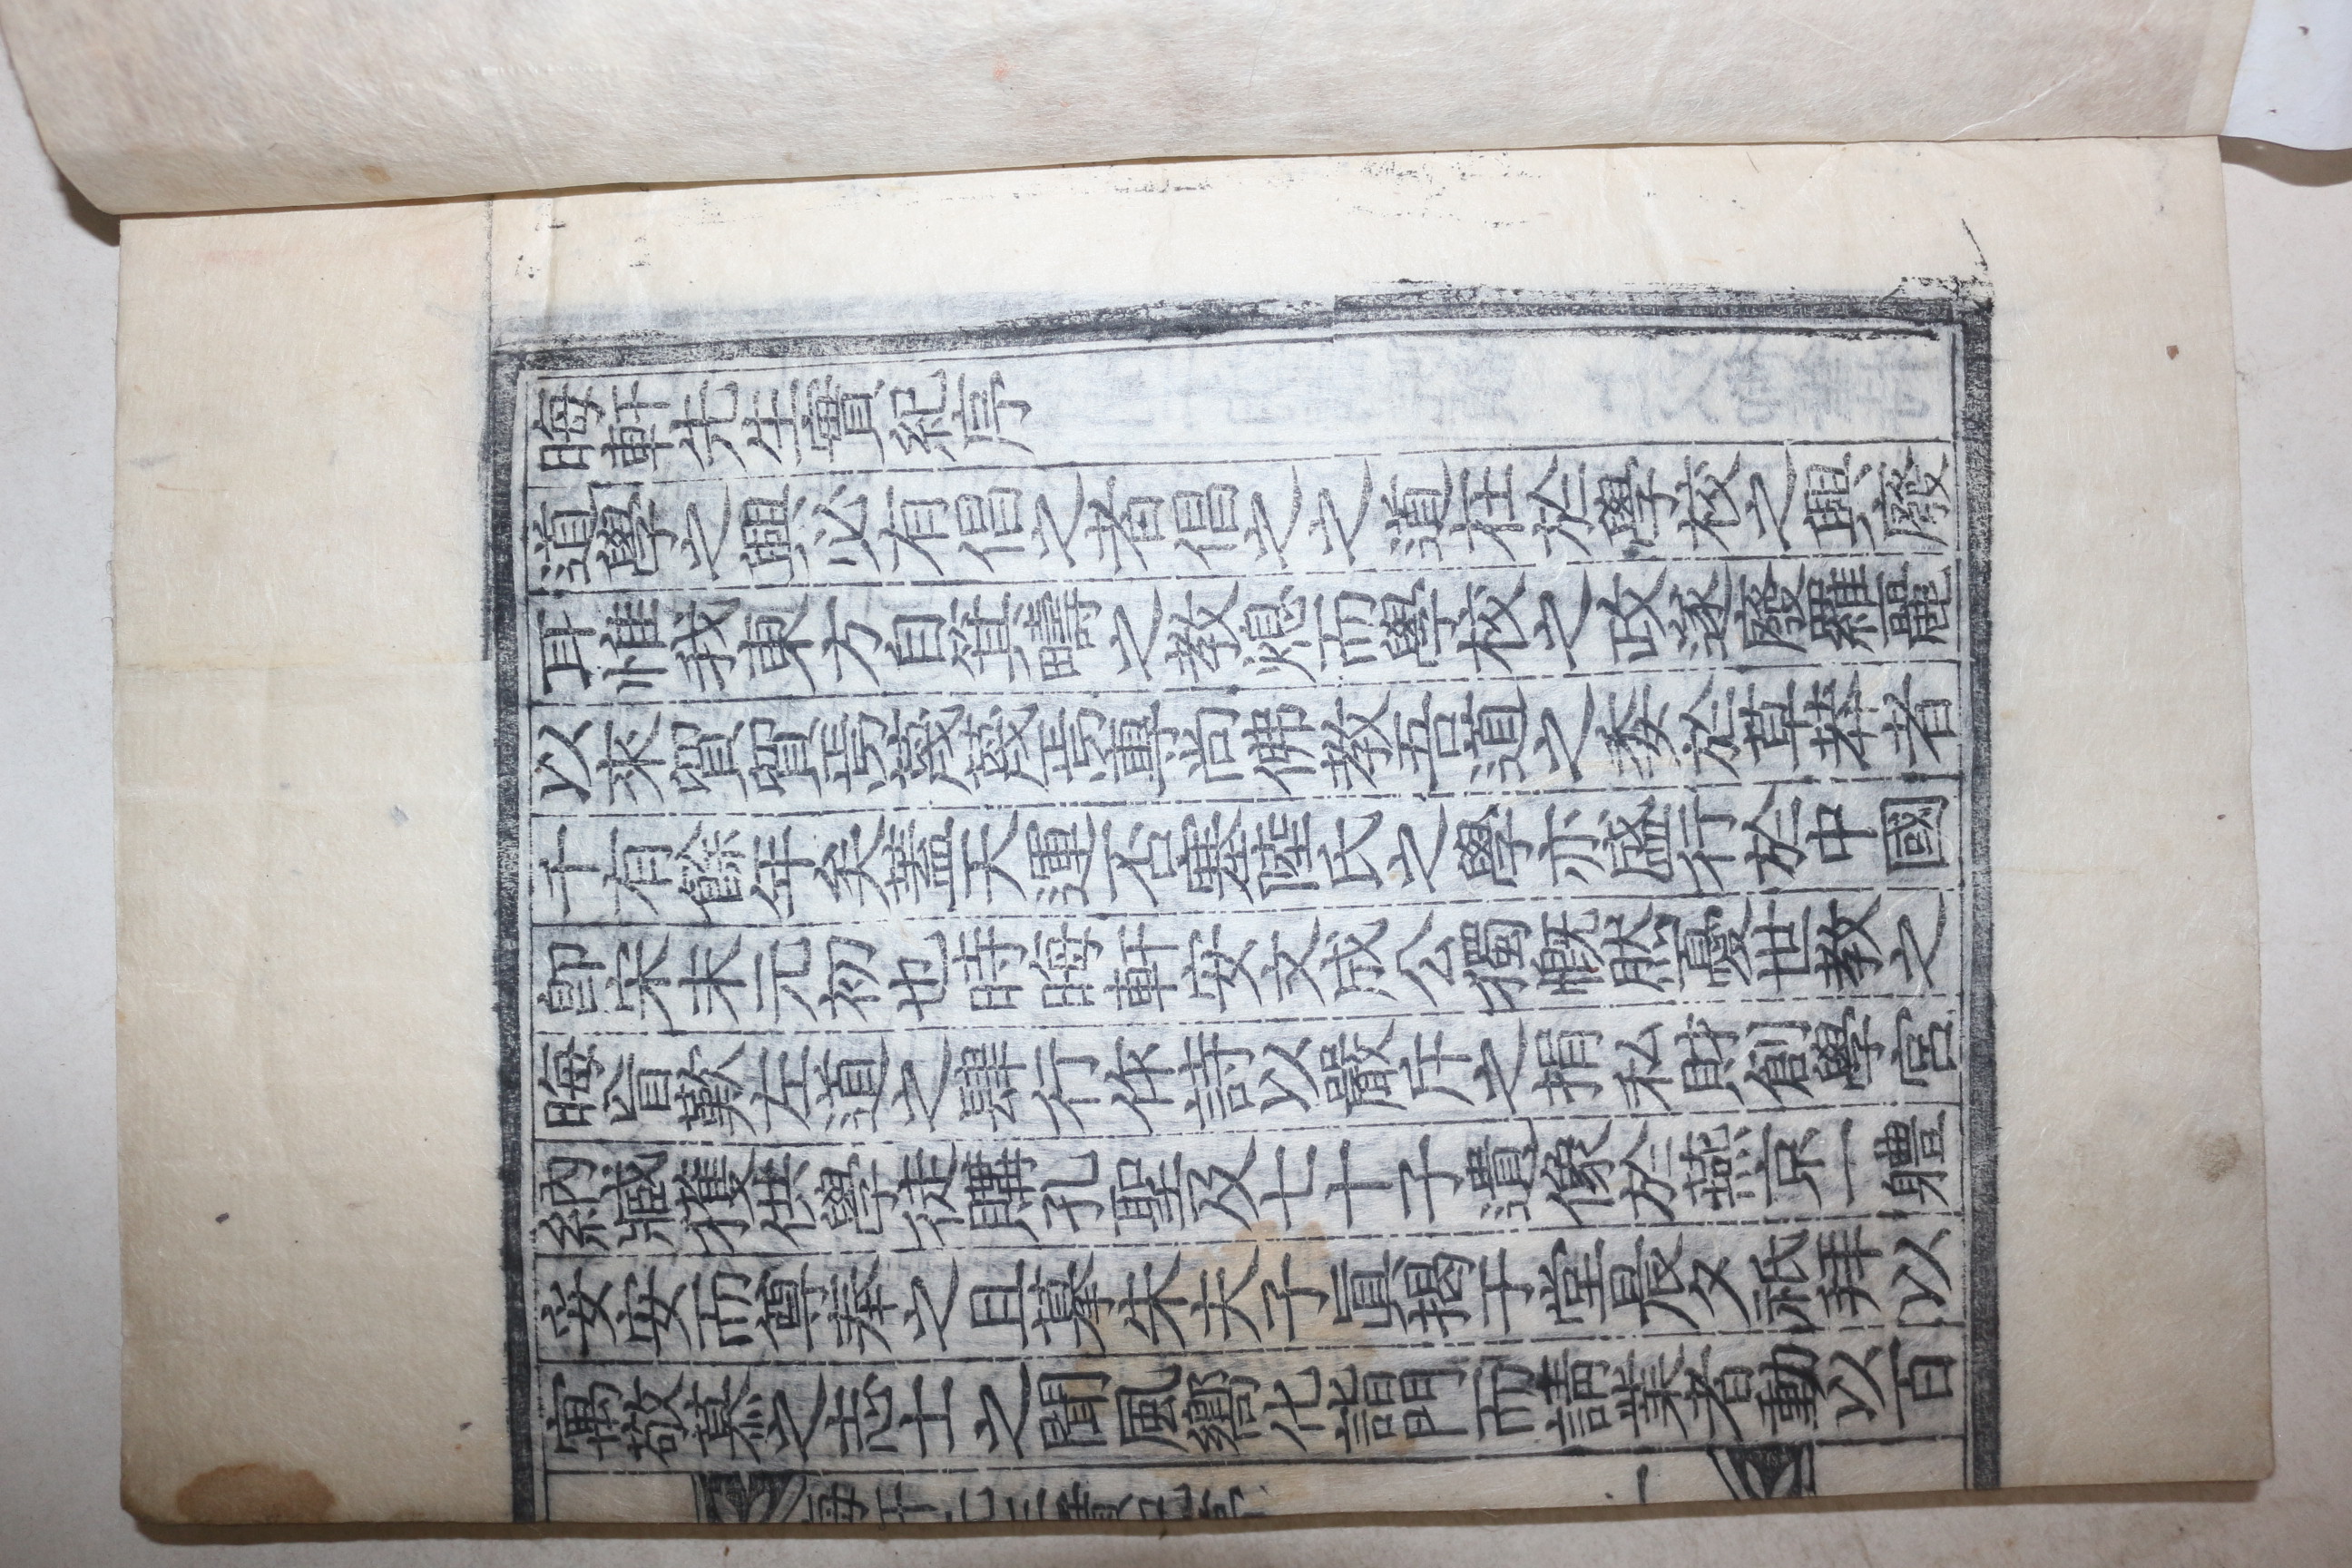 晦軒先生實紀序
道學之興必有倡之者倡之之道在於學校之興廢
耳惟我東方自箕疇之教熄而學校之政遂廢羅麗
以來貿貿焉蔑蔑焉專尚佛教吾道之委於草莽者
千有餘年矣蓋天運否塞陸氏之學亦盛行於中國
卽宋末元初也時晦軒安文成公獨慨然憂世教之
晦盲歎左道之肆行作詩以嚴斥之捐私財創學宮
納臧獲供學徒購孔聖及七十子遺像於燕京一體
妥安而尊奉之且摹朱夫子眞揭于堂晨夕祗拜以
寓敬慕之志士之聞風嚮化詣門而請業者動以百
晦軒先生實紀序 一